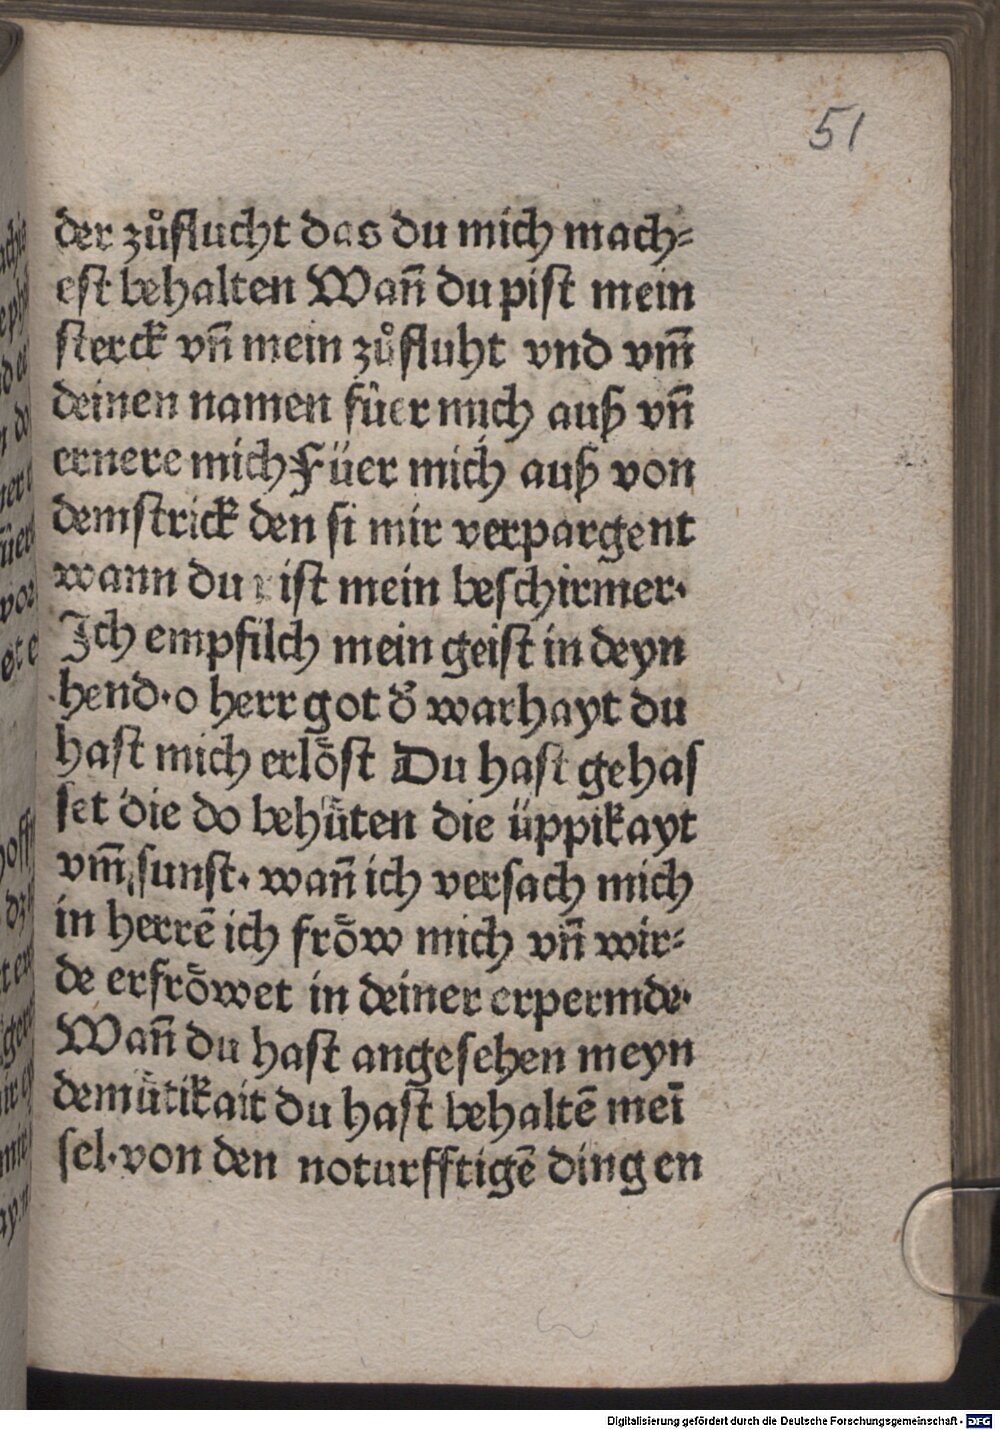 51
der zůflucht das du mich mach⸗
est behalten Wañ du pist mein
sterck vñ mein zůfluht vnd vm̃
deinen namen fûer mich auß vñ
ernere mich Füer mich auß von
demstrick den si mir verpargent
wann du pist mein beschirmer·
Jch empfilch mein geist in deyn
hend·o herr got d̉ warhayt du
hast mich erlöst Du hast gehas
set die do behüten die üppikayt
vm̃ sunst· wañ ich versach mich
in herrē ich fröw mich vñ wir⸗
de erfröwet in deiner erpermde·
Wañ du hast angesehen meyn
demütikait du hast behaltē meī
sel·von den noturfftigē dingen
Digitalisierung gefördert durch die Deutsche Forschungsgemeinschaft - DFG